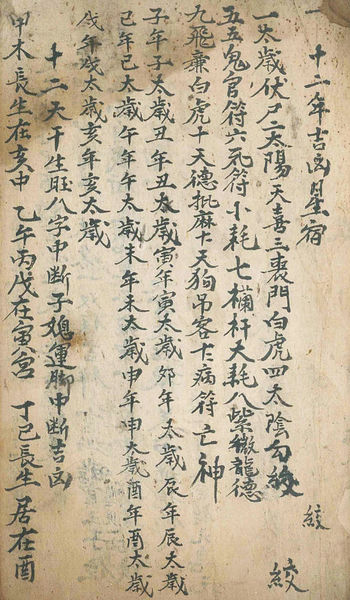 十二年吉凶星宿
一太歲伏尸二太陽天喜三喪門白虎四太陰勾絞
絞
絞
五五鬼官符六死符小耗七欄杆大耗八紫微龍德
九飛兼白虎十天德批麻十一天狗吊客十二病符亡神
子年子太歲丑年丑太歲寅年寅太歲卯年太歲辰年辰太歲
巳年巳太歲午年午太歲未年未太歲申年申太歲酉年酉太歲
戌年戌太歲亥年亥太歲
十二天干生旺八字中斷子媳運腳中斷吉凶
甲木長生在亥中 乙午丙戊在寅宮 丁己長生居在酉